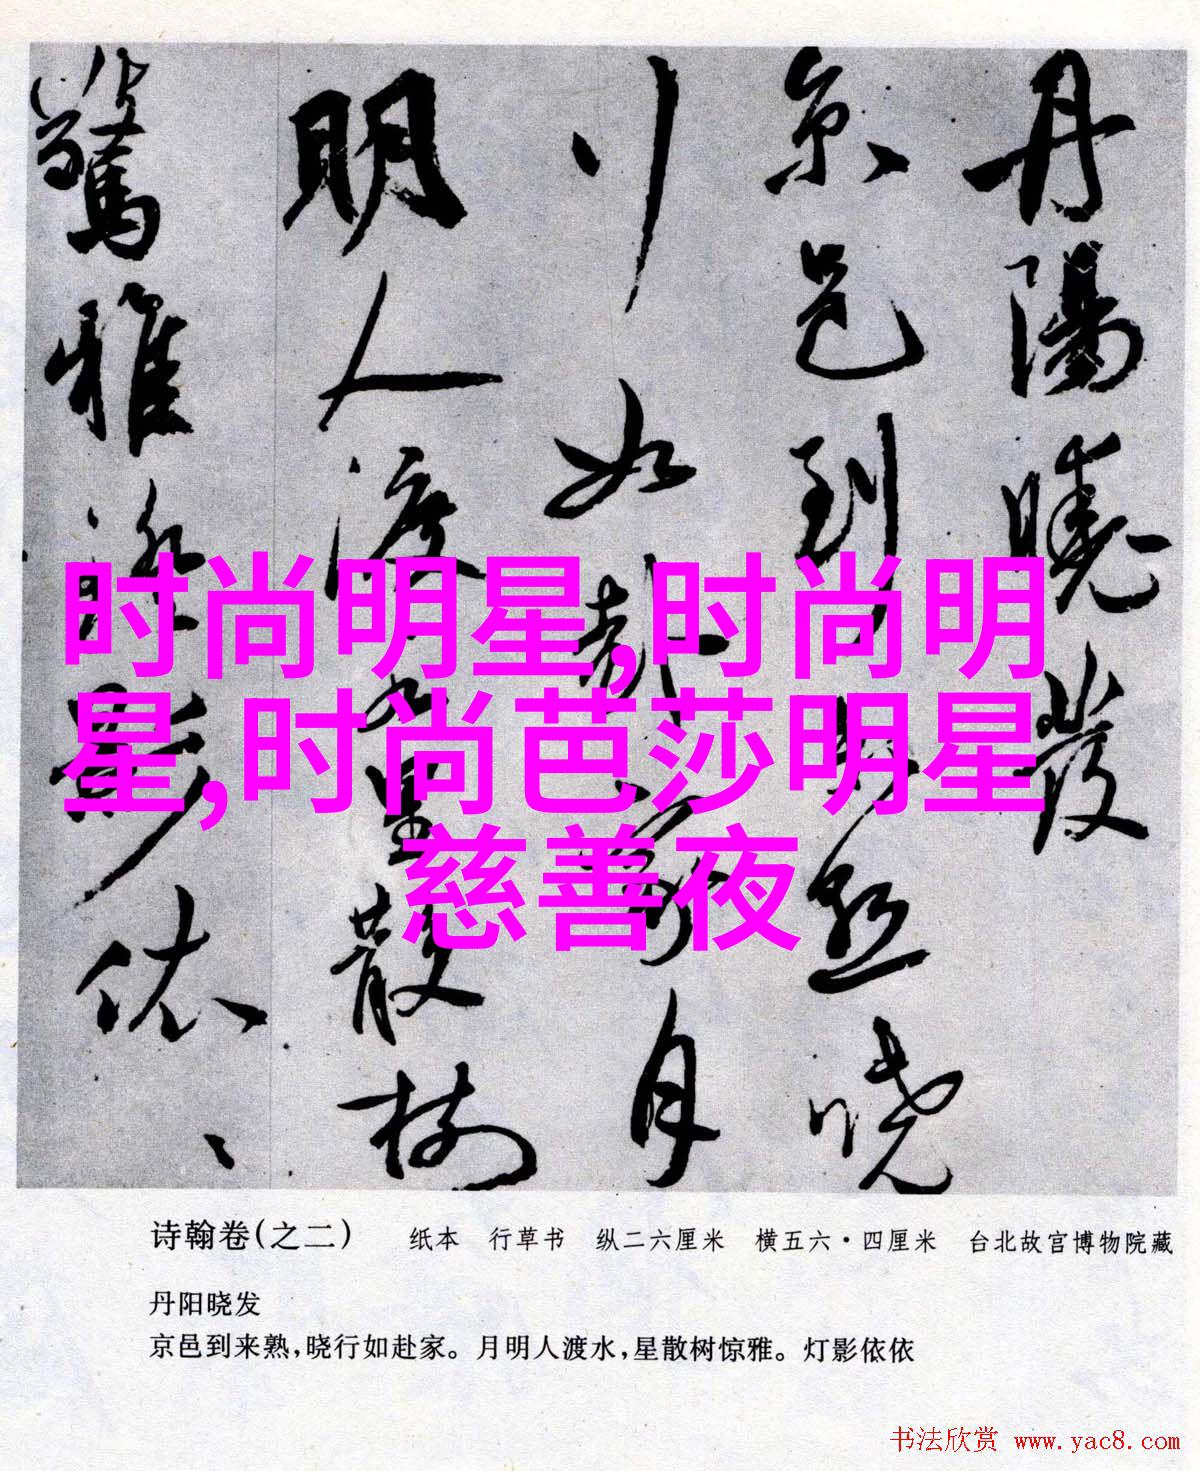 丹陽曉發
京邑到来熟曉
行如赴家月
明人渡水星散樹
驚雅灯影依、
时尚明星,时尚明
星,时尚芭莎明星
慈善夜
诗翰卷(之二) 纸本 行草书 纵二六厘米 横五六·四厘米 台北故宫博物院藏
丹阳晓发
京邑到来熟,晓行如赴家。月明人渡水,星散树惊雅。灯影依依
书法欣赏 www.yac8.com